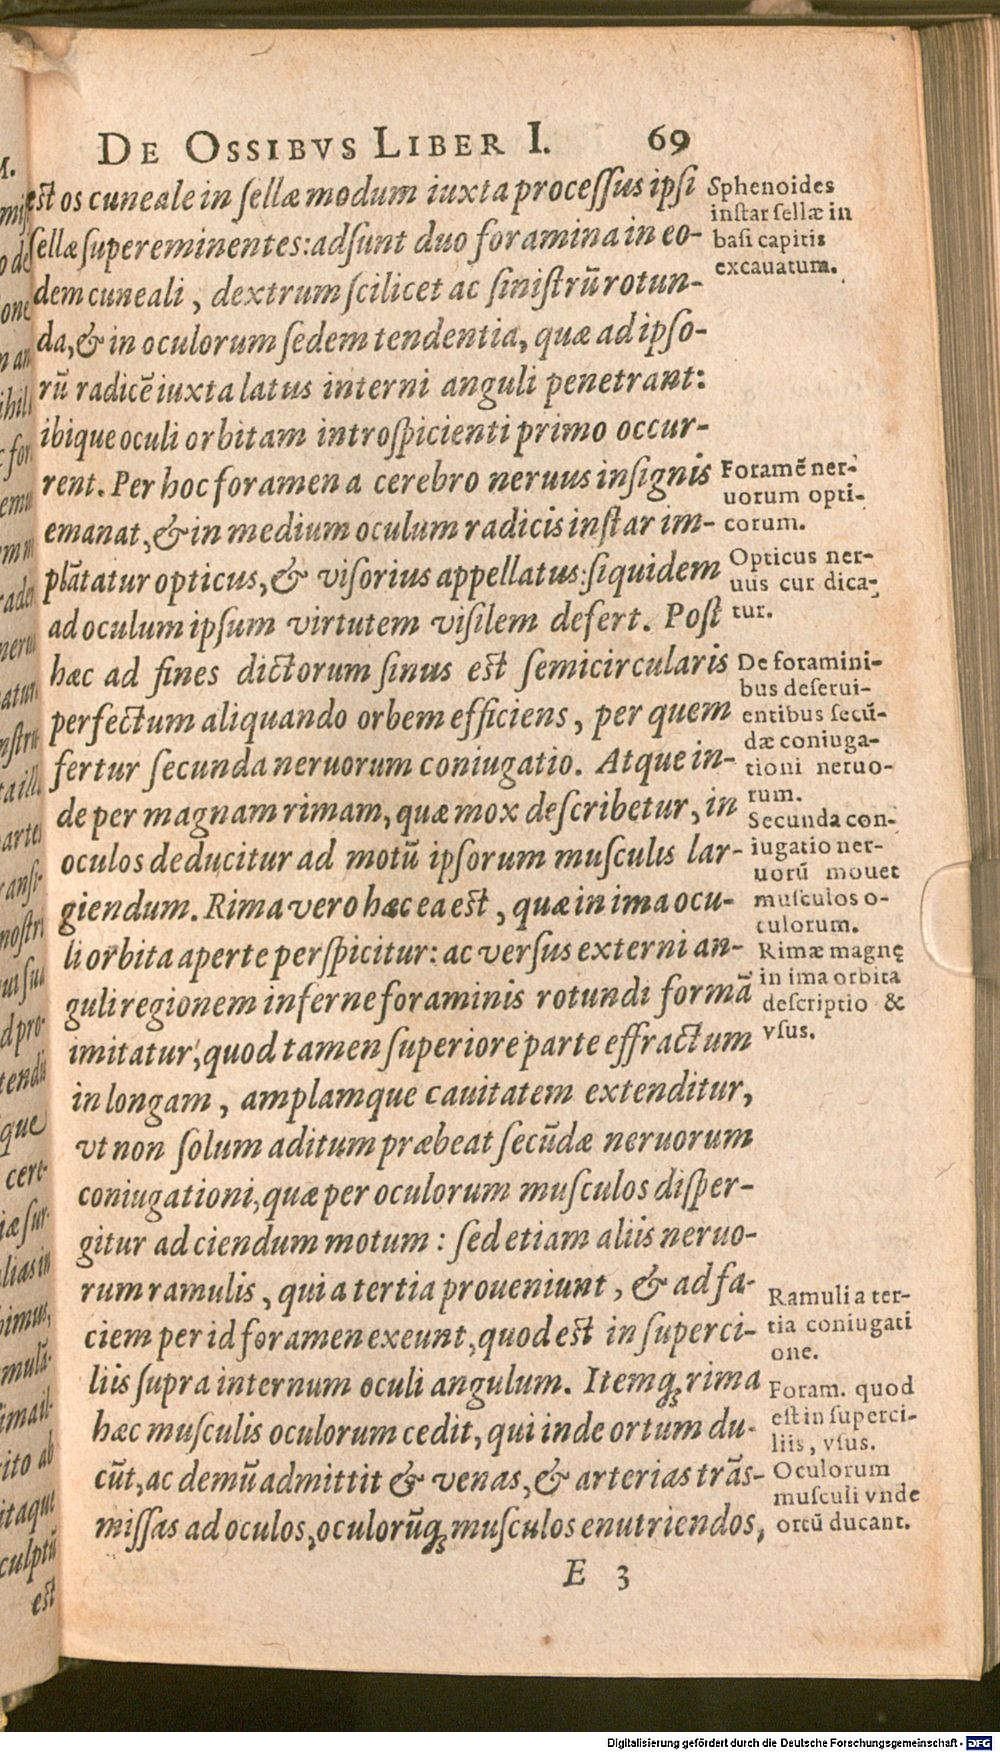 DE OSSIBVS LIBER I. 69
est os cuneale in sellæ modum iuxta processus ipsi
sellæ supereminentes: adsunt duo foramina in eo-
dem cuneali, dextrum scilicet ac sinistrū rotun-
da, & in oculorum sedem tendentia, quæ ad ipso-
rū radicē iuxta latus interni anguli penetrant:
ibique oculi orbitam introspicienti primo occur-
rent. Per hoc foramen a cerebro neruus insignis
emanat, & in medium oculum radicis instar im-
plātatur opticus, & visorius appellatus: siquidem
ad oculum ipsum virtutem visilem defert. Post
hæc ad fines dictorum sinus est semicircularis
perfectum aliquando orbem efficiens, per quem
fertur secunda neruorum coniugatio. Atque in-
de per magnam rimam, quæ mox describetur, in
oculos deducitur ad motū ipsorum musculis lar-
giendum. Rima vero hæc ea est, quæ in ima ocu-
li orbita aperte perspicitur: ac versus externi an-
guli regionem inferne foraminis rotundi formā
imitatur, quod tamen superiore parte effractum
in longam, amplamque cauitatem extenditur,
vt non solum aditum præbeat secūdæ neruorum
coniugationi, quæ per oculorum musculos disper-
gitur ad ciendum motum: sed etiam aliis neruo-
rum ramulis, qui a tertia proueniunt, & ad fa-
ciem per id foramen exeunt, quod est in superci-
liis supra internum oculi angulum. Itemq; rima
hæc musculis oculorum cedit, qui inde ortum du-
cūt, ac demū admittit & venas, & arterias trās-
missas ad oculos, oculorūq; musculos enutriendos,
E 3
Sphenoides
instar sellæ in
basi capitis
excauatum.
Foramē ner-
uorum opti-
corum.
Opticus ner-
uus cur dica-
tur.
De foramini-
bus deserui-
entibus secū-
dæ coniuga-
tioni neruo-
rum.
Secunda con-
iugatio ner-
uorū mouet
musculos o-
culorum.
Rimæ magnę
in ima orbita
descriptio &
vsus.
Ramuli a ter-
tia coniugati
one.
Foram. quod
est in superci-
liis, vsus.
Oculorum
musculi vnde
ortū ducant.
Digitalisierung gefördert durch die Deutsche Forschungsgemeinschaft - DFG